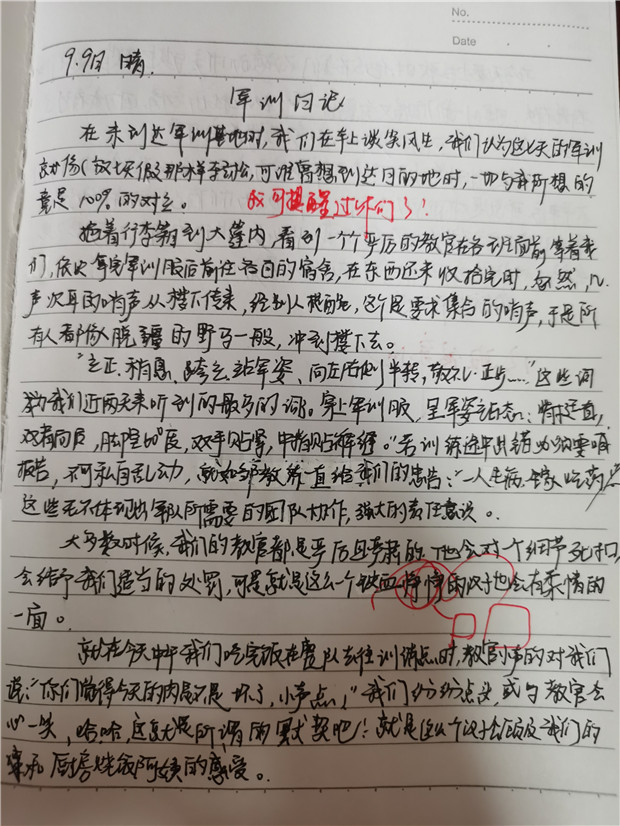 No.
Date
9.9日 晴.
军训日记
在未到达军训基地时,我们在车上谈笑风生,我们认为这七天的军训
就像(放七天假那样手到,可谁曾想到达目的地时,一切与我所想的
竟是100%的对立。 我可提醒过你们了!
拖着行李箱到大篷内,看到一个个严厉的教官在各班面前等着我
们,依次拿完军训服后前往各自的宿舍,在东西还未收拾完时,忽然,几
声刺耳的哨声从楼下传来,经别人提醒,这个是要求集合的哨声,于是所
有人都像脱疆的野马一般,冲到楼下去。
"立正、稍息、跨立、站军姿、向左向右半转,敬礼、正步……"这些词
为我们近两天来听到的最多的词。穿上军训服,呈军姿站态:
双肩向后,脚呈60度,双手贴紧,中指贴裤缝。若训练途中出错必须要喊
报告,不可私自乱动,就如邻教 一直给我们的忠告:"一人生病,全家吃药"
这些无不体现出军队所需要的团队协作,强大的责任意识。
大多数时候,我们的教官都是严厉且的,他会对一个细节死扣,
会给予我们适当的处罚,可是就是这么一个铁面的汉子也会有柔情的
一面。
就在今天中午我们吃完饭在整队去往训练点时,教官小声的对我们
说:"你们觉得今天的肉是不是坏了,小声点,"我们纷纷点头,或与教官会
心一笑,哈哈,这就是所谓的默契吧!就是这么个汉子会顾及我们的
和厨房烧饭阿姨的感受。